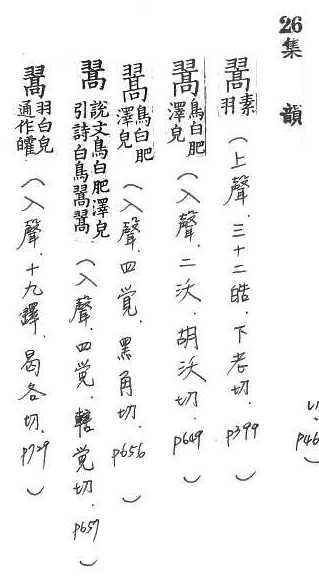 26集韻
翯素羽（上聲．三十二皓．下老切．p399）
翯鳥白肥澤皃（入聲．二沃．胡沃切．p649）
翯鳥白肥澤皃（入聲．四覚．黑角切．p656）
翯說文鳥白肥澤皃引詩白鳥翯翯（入聲．四覚．轄覚切．p657）
翯羽白皃通作㿥（入聲．十九鐸．曷各切．p729）